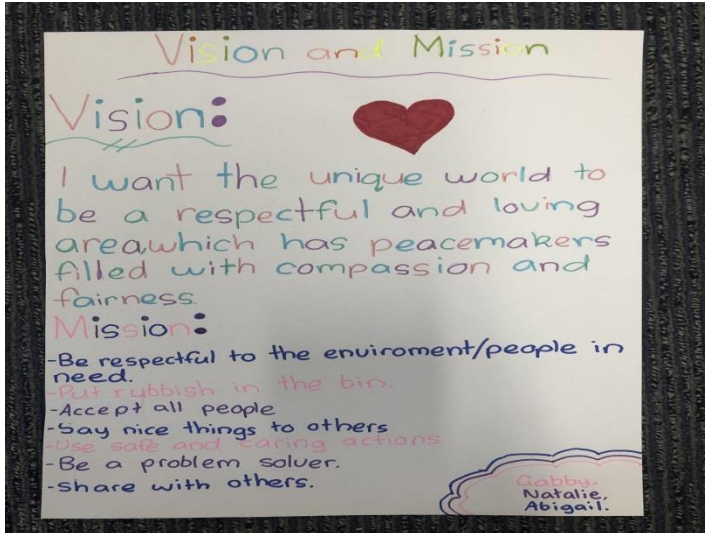 Vision and Mission
Vision:
I want the unique world to
be a respectful and loving
areawhich has peacemakers
filled with compassion and
fairness.
Mission:
-Be respectful to the enviroment/people in
need.
-Put rubbish in the bin.
-Accept all people
-Say nice things to others
-Use safe and caring actions.
-Be a problem solver.
-Share with others.
Gabby,
Natalie,
Abigail.